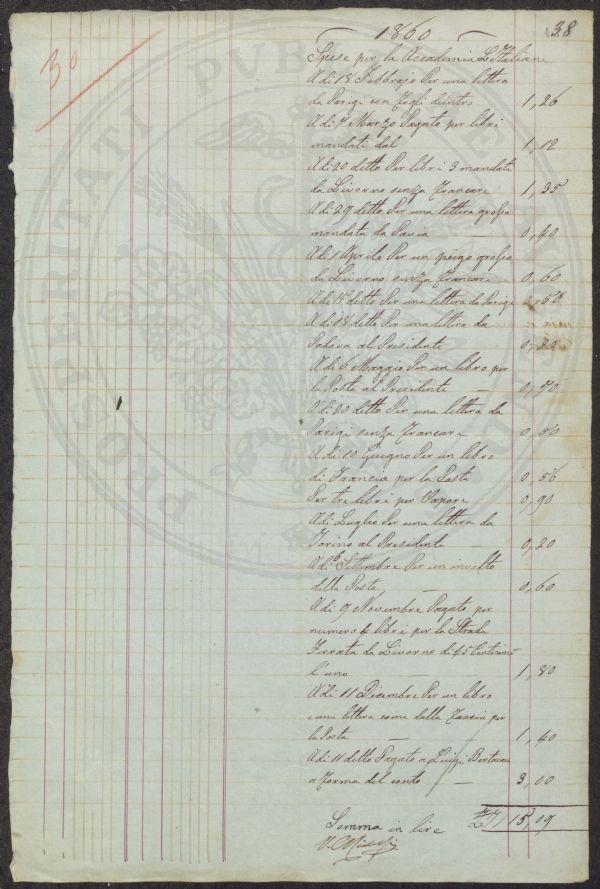 38
30
1860
Spese per la Accademia L'Italiana
A di 18 Febbrajo Per una lettera
da Parigi con Fogli dentro 1,26
A di 7 Marzo Pagato per libri
mandati dal 1,12
A di 20 ditto Per libri 3 mandati
da Livorno senza Francare 1,35
A di 29 ditto Per una lettera grossa
mandata da Pavia 0,40
A di 1 Aprile Per un piego grosso
da Livorno senza Francare 0,60
A di 15 ditto Per una lettera di Parigi 0,50
A di 18 ditto Per una lettera da
Padova al Presidente 0,20
A di 6 Maggio Per un libro per
la Posta al Presidente — 0,70
A di 20 ditto Per una lettera da
Parigi senza Francare 0,50
A di 10 Giugno Per un libro
di Francia per la Posta 0,56
Per tre libri per Vapore 0,90
A di Luglio Per una lettera da
Torino al Presidente — 0,20
A di 6 Settembre Per un involto
della Posta — 0,60
A di 9 Novembre Pagato per
numero 4 libri per la Strada
Ferrata da Livorno di 45 Centesimi
l'uno 1,80
A di 11 Dicembre Per un libro
e una lettera come dalla per
la Posta — 1,40
A di 11 ditto Pagato a Luigi
a Forma del conto — 3,00
Somma in lire 15,09